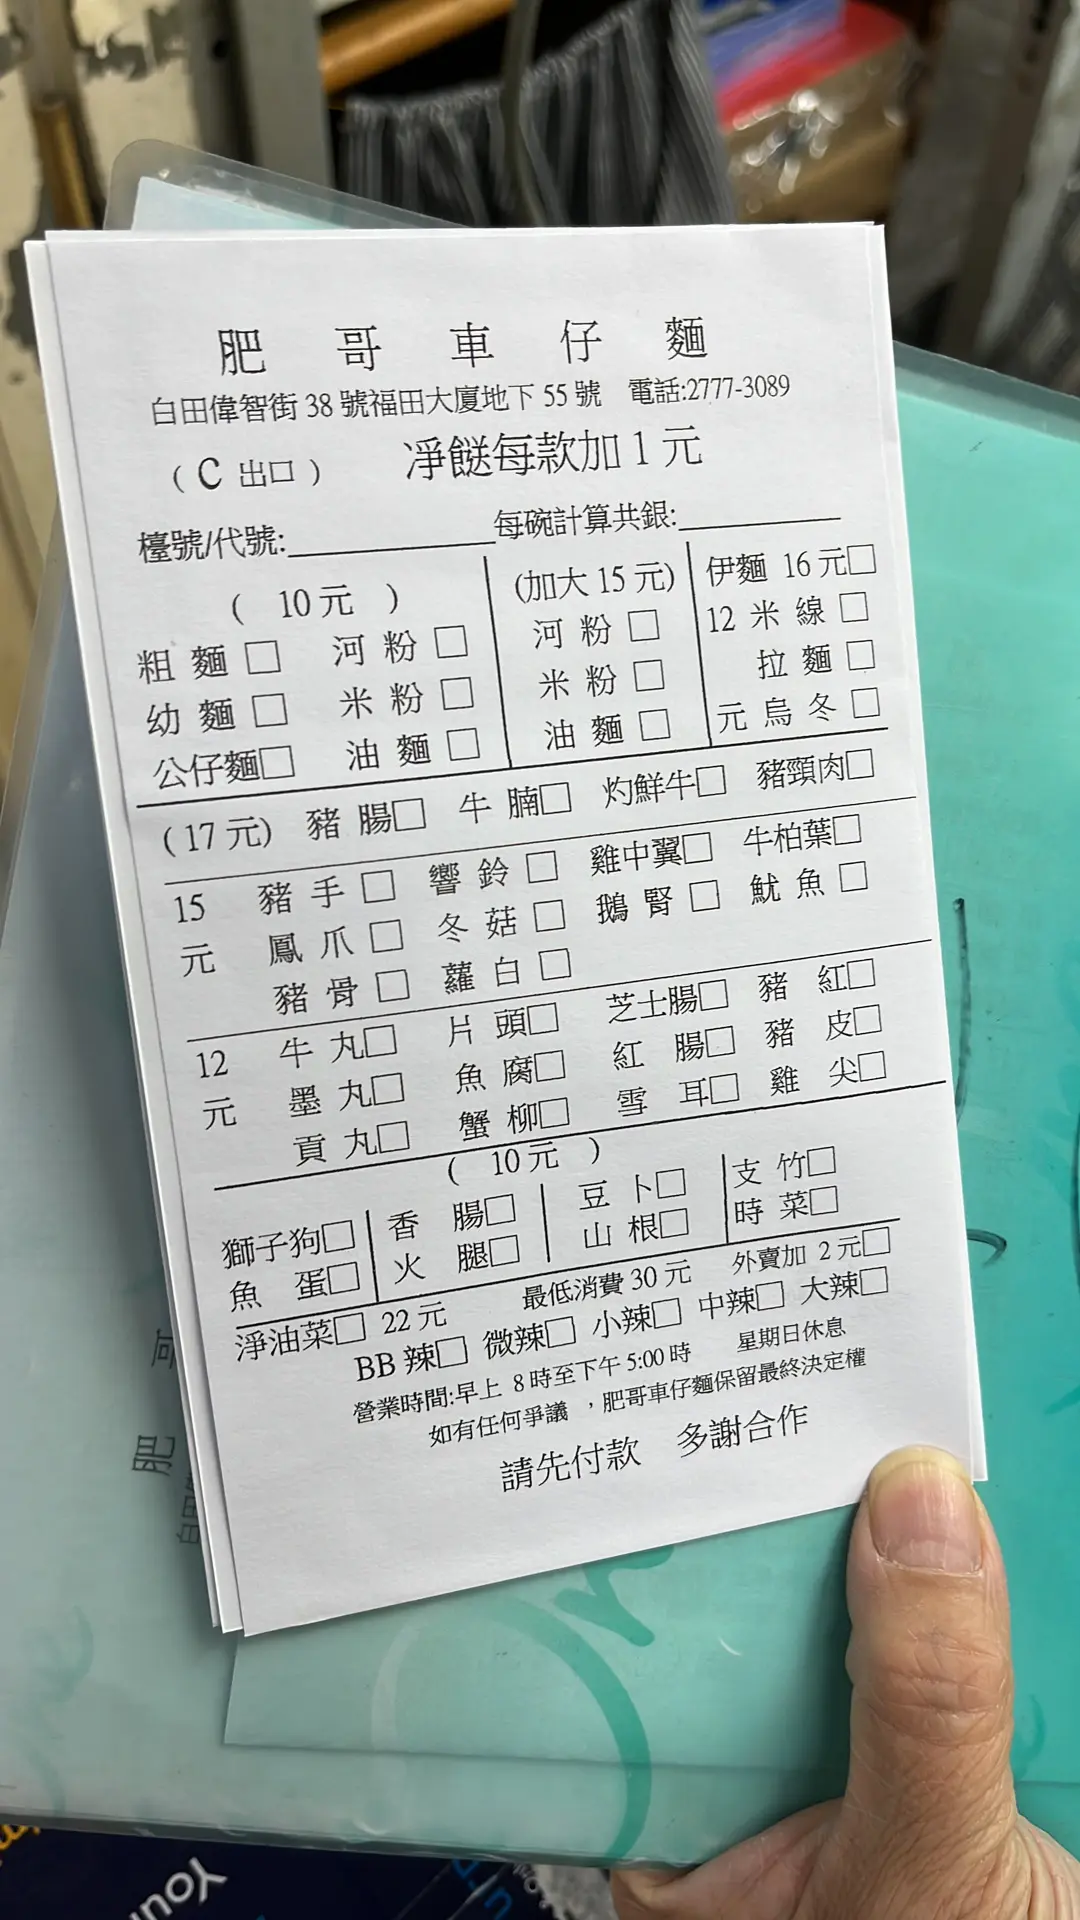 肥哥車仔麵
白田偉智街 38 號福田大廈地下 55 號 電話:2777-3089
( C 出口 ) 凈餸每款加 1 元
檯號/代號:__________ 每碗計算共銀:__________
( 10 元 ) (加大 15 元) 伊麵 16 元□
粗麵□ 河粉□ 河粉□ 12 米線□
幼麵□ 米粉□ 米粉□ 拉麵□
公仔麵□ 油麵□ 油麵□ 元 烏冬□
(17 元) 豬腸□ 牛腩□ 灼鮮牛□ 豬頸肉□
15 豬手□ 響鈴□ 雞中翼□ 牛柏葉□
元 鳳爪□ 冬菇□ 鵝腎□ 魷魚□
豬骨□ 蘿白□
12 牛丸□ 片頭□ 芝士腸□ 豬紅□
元 墨丸□ 魚腐□ 紅腸□ 豬皮□
貢丸□ 蟹柳□ 雪耳□ 雞尖□
( 10 元 )
獅子狗□ 香腸□ 豆卜□ 支竹□
魚蛋□ 火腿□ 山根□ 時菜□
淨油菜□ 22 元 最低消費 30 元 外賣加 2 元□
BB 辣□ 微辣□ 小辣□ 中辣□ 大辣□
營業時間:早上 8 時至下午 5:00 時 星期日休息
如有任何爭議 ，肥哥車仔麵保留最終決定權
請先付款 多謝合作
肥
You